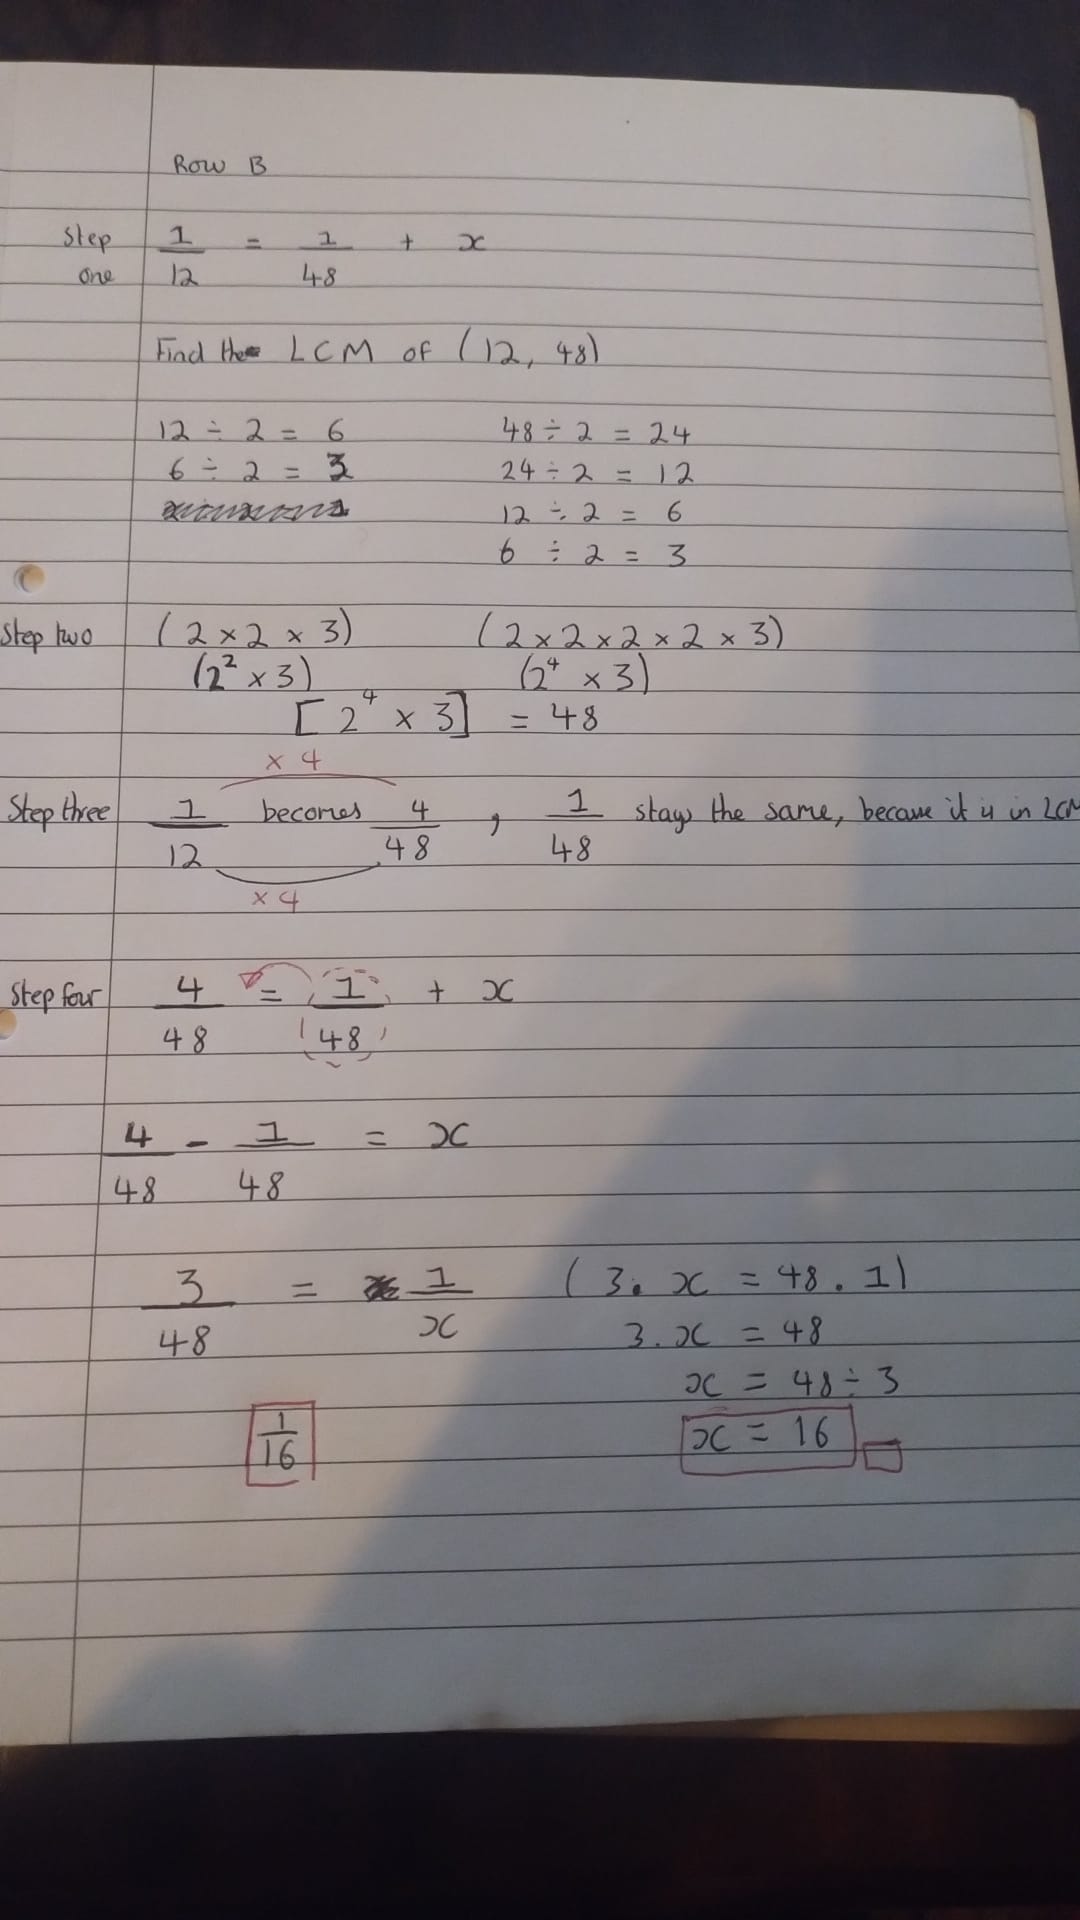 Row B
Step one 1/12 = 1/48 + x
Find the LCM of (12, 48)
12 ÷ 2 = 6 48 ÷ 2 = 24
6 ÷ 2 = 3 24 ÷ 2 = 12
12 ÷ 2 = 6
6 ÷ 2 = 3
Step two (2 x 2 x 3) (2 x 2 x 2 x 2 x 3)
(2² x 3) (2⁴ x 3)
[2⁴ x 3] = 48
x 4
Step three 1/12 becomes 4/48 , 1/48 stays the same, because it is in LCM
x 4
Step four 4/48 = 1/48 + x
4/48 - 1/48 = x
3/48 = 1/x (3. x = 48 . 1)
3. x = 48
x = 48 ÷ 3
1/16 x = 16